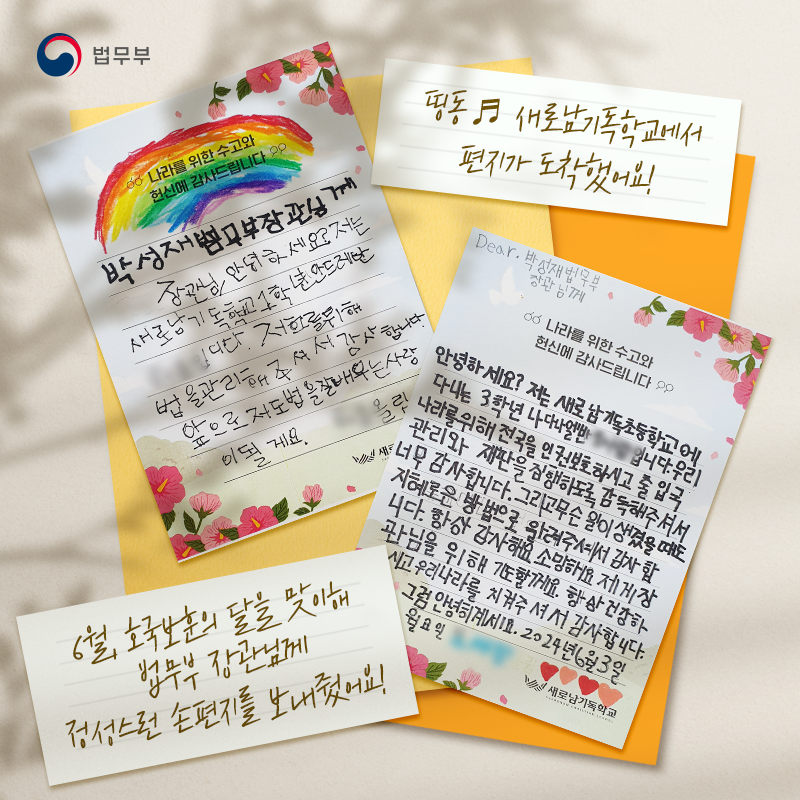 법무부
띵동 ♬ 새로남기독학교에서
편지가 도착했어요!
나라를 위한 수고와
헌신에 감사드립니다
박성재 법무부장관님께
장관님, 안녕하세요? 저는
새로남기독학교 1학년 안드레반
입니다. 저희를위해
법을관리해 주셔서 감사합니다.
앞으로 저도법을잘배우는사람
이될게요.
올림
Dear. 박성재법무부
장관님께
나라를 위한 수고와
헌신에 감사드립니다
안녕하세요? 저는 새로남기독초등학교에
다니는 3학년 나다나엘반 입니다.우리
나라를위해 전국을 인권보호하시고 출입국
관리와 재판을 집행하도록 감독해주셔서
너무 감사합니다. 그리고무슨 일이 생겼을 때도
지혜로운 방법으로 알려주셔서 감사합
니다. 항상 감사해요 소망하요 제가장
관님을 위해 기도할게요. 항상 건강하
시고 우리나라를 지켜주셔서 감사합니다.
그럼 안녕히계세요. 2024년6월3일
월요일
새로남기독학교
6월, 호국보훈의 달을 맞이해
법무부 장관님께
정성스런 손편지를 보내줬어요!